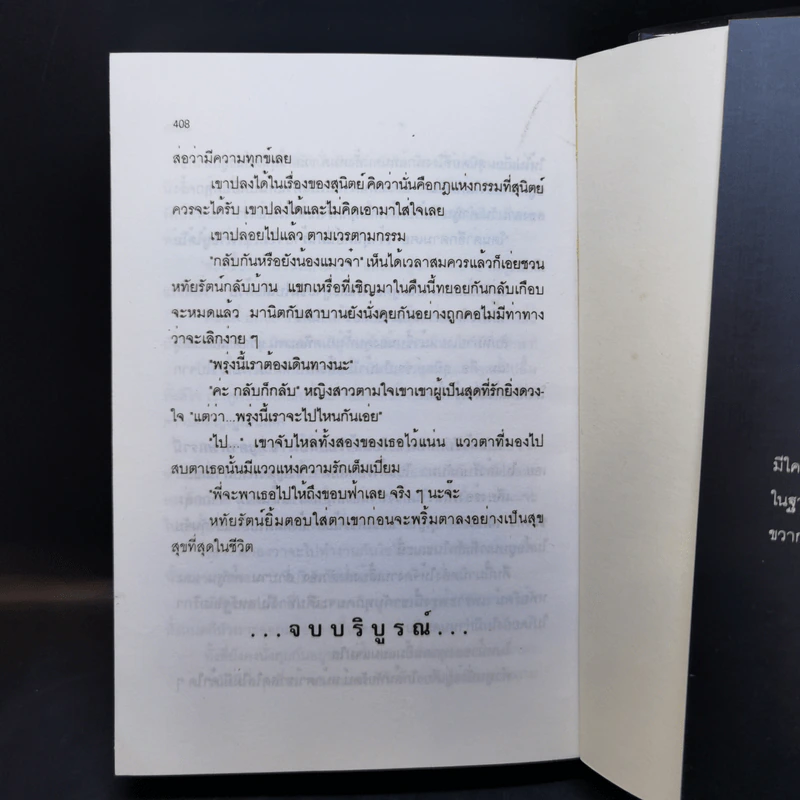 408
ส่อว่ามีความทุกข์เลย
เขาปลงได้ในเรื่องของสุนิตย์ คิดว่านั่นคือกฎแห่งกรรมที่สุนิตย์
ควรจะได้รับ เขาปลงได้และไม่คิดเอามาใส่ใจเลย
เขาปล่อยไปแล้ว ตามเวรตามกรรม
"กลับกันหรือยังน้องแมวจ๋า" เห็นได้เวลาสมควรแล้วก็เอ่ยชวน
หทัยรัตน์กลับบ้าน แขกเหรื่อที่เชิญมาในคืนนี้ทยอยกันกลับเกือบ
จะหมดแล้ว มานิตกับสาบานยังนั่งคุยกันอย่างถูกคอไม่มีท่าทาง
ว่าจะเลิกง่าย ๆ
"พรุ่งนี้เราต้องเดินทางนะ"
"ค่ะ กลับก็กลับ" หญิงสาวตามใจเขาเขาผู้เป็นสุดที่รักยิ่งดวง-
ใจ "แต่ว่า...พรุ่งนี้เราจะไปไหนกันเอ่ย"
"ไป..." เขาจับไหล่ทั้งสองของเธอไว้แน่น แววตาที่มองไป
สบตาเธอนั้นมีแววแห่งความรักเต็มเปี่ยม
"พี่จะพาเธอไปให้ถึงขอบฟ้าเลย จริง ๆ นะจ๊ะ
หทัยรัตน์ยิ้มตอบใส่ตาเขาก่อนจะพริ้มตาลงอย่างเป็นสุข
สุขที่สุดในชีวิต
...จบบริบูรณ์...
มีใค
ในฐา
ขวาก